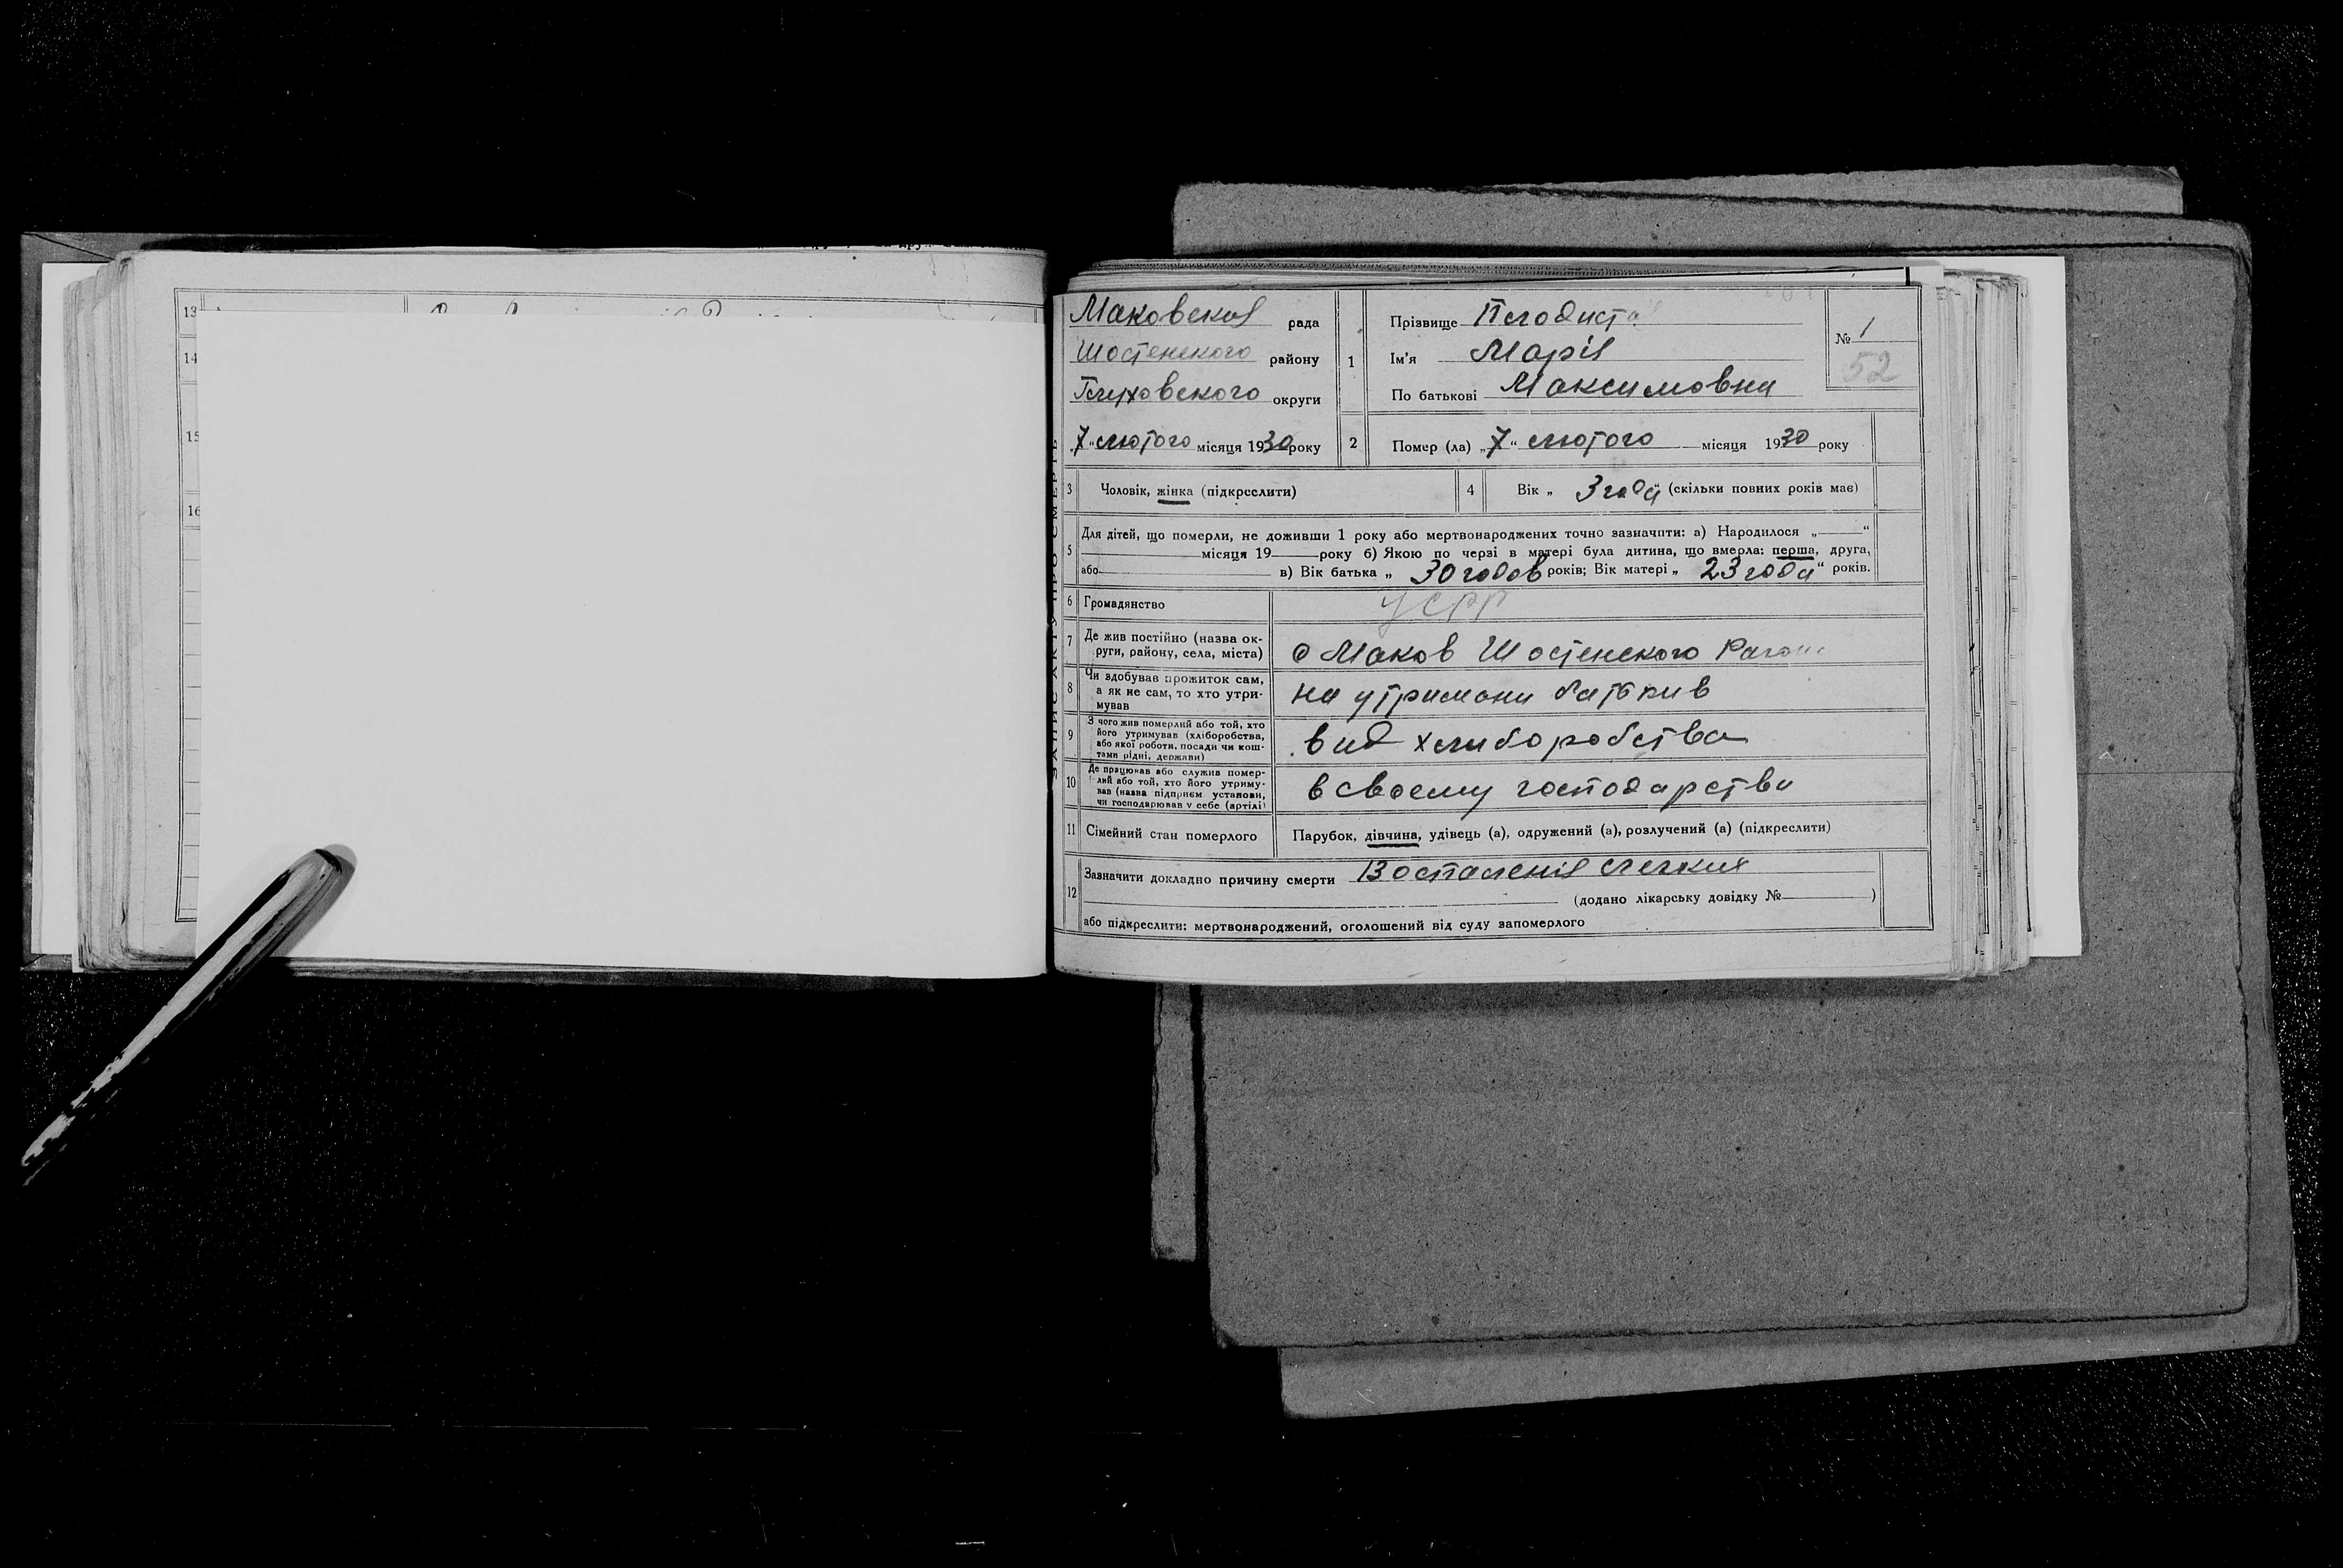 13
14
15
16
ЗАПИС АКТУ ПРО СМЕРТЬ
Маковская рада
Шостенского району
Глуховского округи
„7“ лютого місяця 1930 року
1
Прізвище
Ім'я Марія
По батькові Максимовна
№ 1
52
2 Помер (ла) „7“ лютого місяця 1930 року
3 Чоловік, жінка (підкреслити)
4 Вік „ 3 года “ (скільки повних років має)
5 Для дітей, що померли, не доживши 1 року або мертвонароджених точно зазначити: а) Народилося „ “
місяця 19 року б) Якою по черзі в матері була дитина, що вмерла: перша, друга,
або в) Вік батька „ 30 годов років; Вік матері „ 23 года “ років.
6 Громадянство УСРР
7 Де жив постійно (назва ок-
руги, району, села, міста)
с Маков Шостенского
8 Чи здобував прожиток сам,
а як не сам, то хто утри-
мував
на утримани батькив
9 З чого жив померлий або той, хто
його утримував (хліборобства,
або якої роботи, посади чи кош-
тами рідні, держави)
вид хлиборобства
10 Де працював або служив помер-
лий або той, хто його утриму-
вав (назва підприєм установи,
чи господарював у себе (артілі)
в своему господарстви
11 Сімейний стан померлого Парубок, дівчина, удівець (а), одружений (а), розлучений (а) (підкреслити)
12 Зазначити докладно причину смерти Воспаленія легких
(додано лікарську довідку № )
або підкреслити: мертвонароджений, оголошений від суду запомерлого